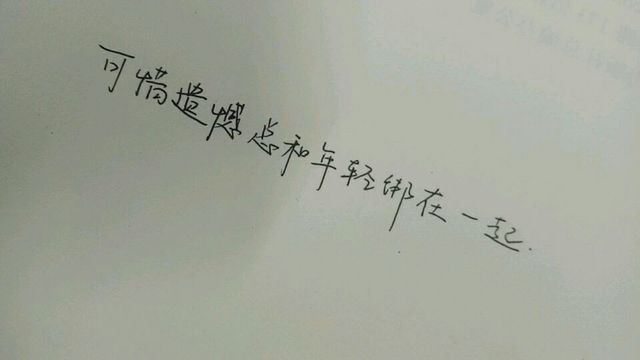 可惜遗憾总和年轻绑在一起.